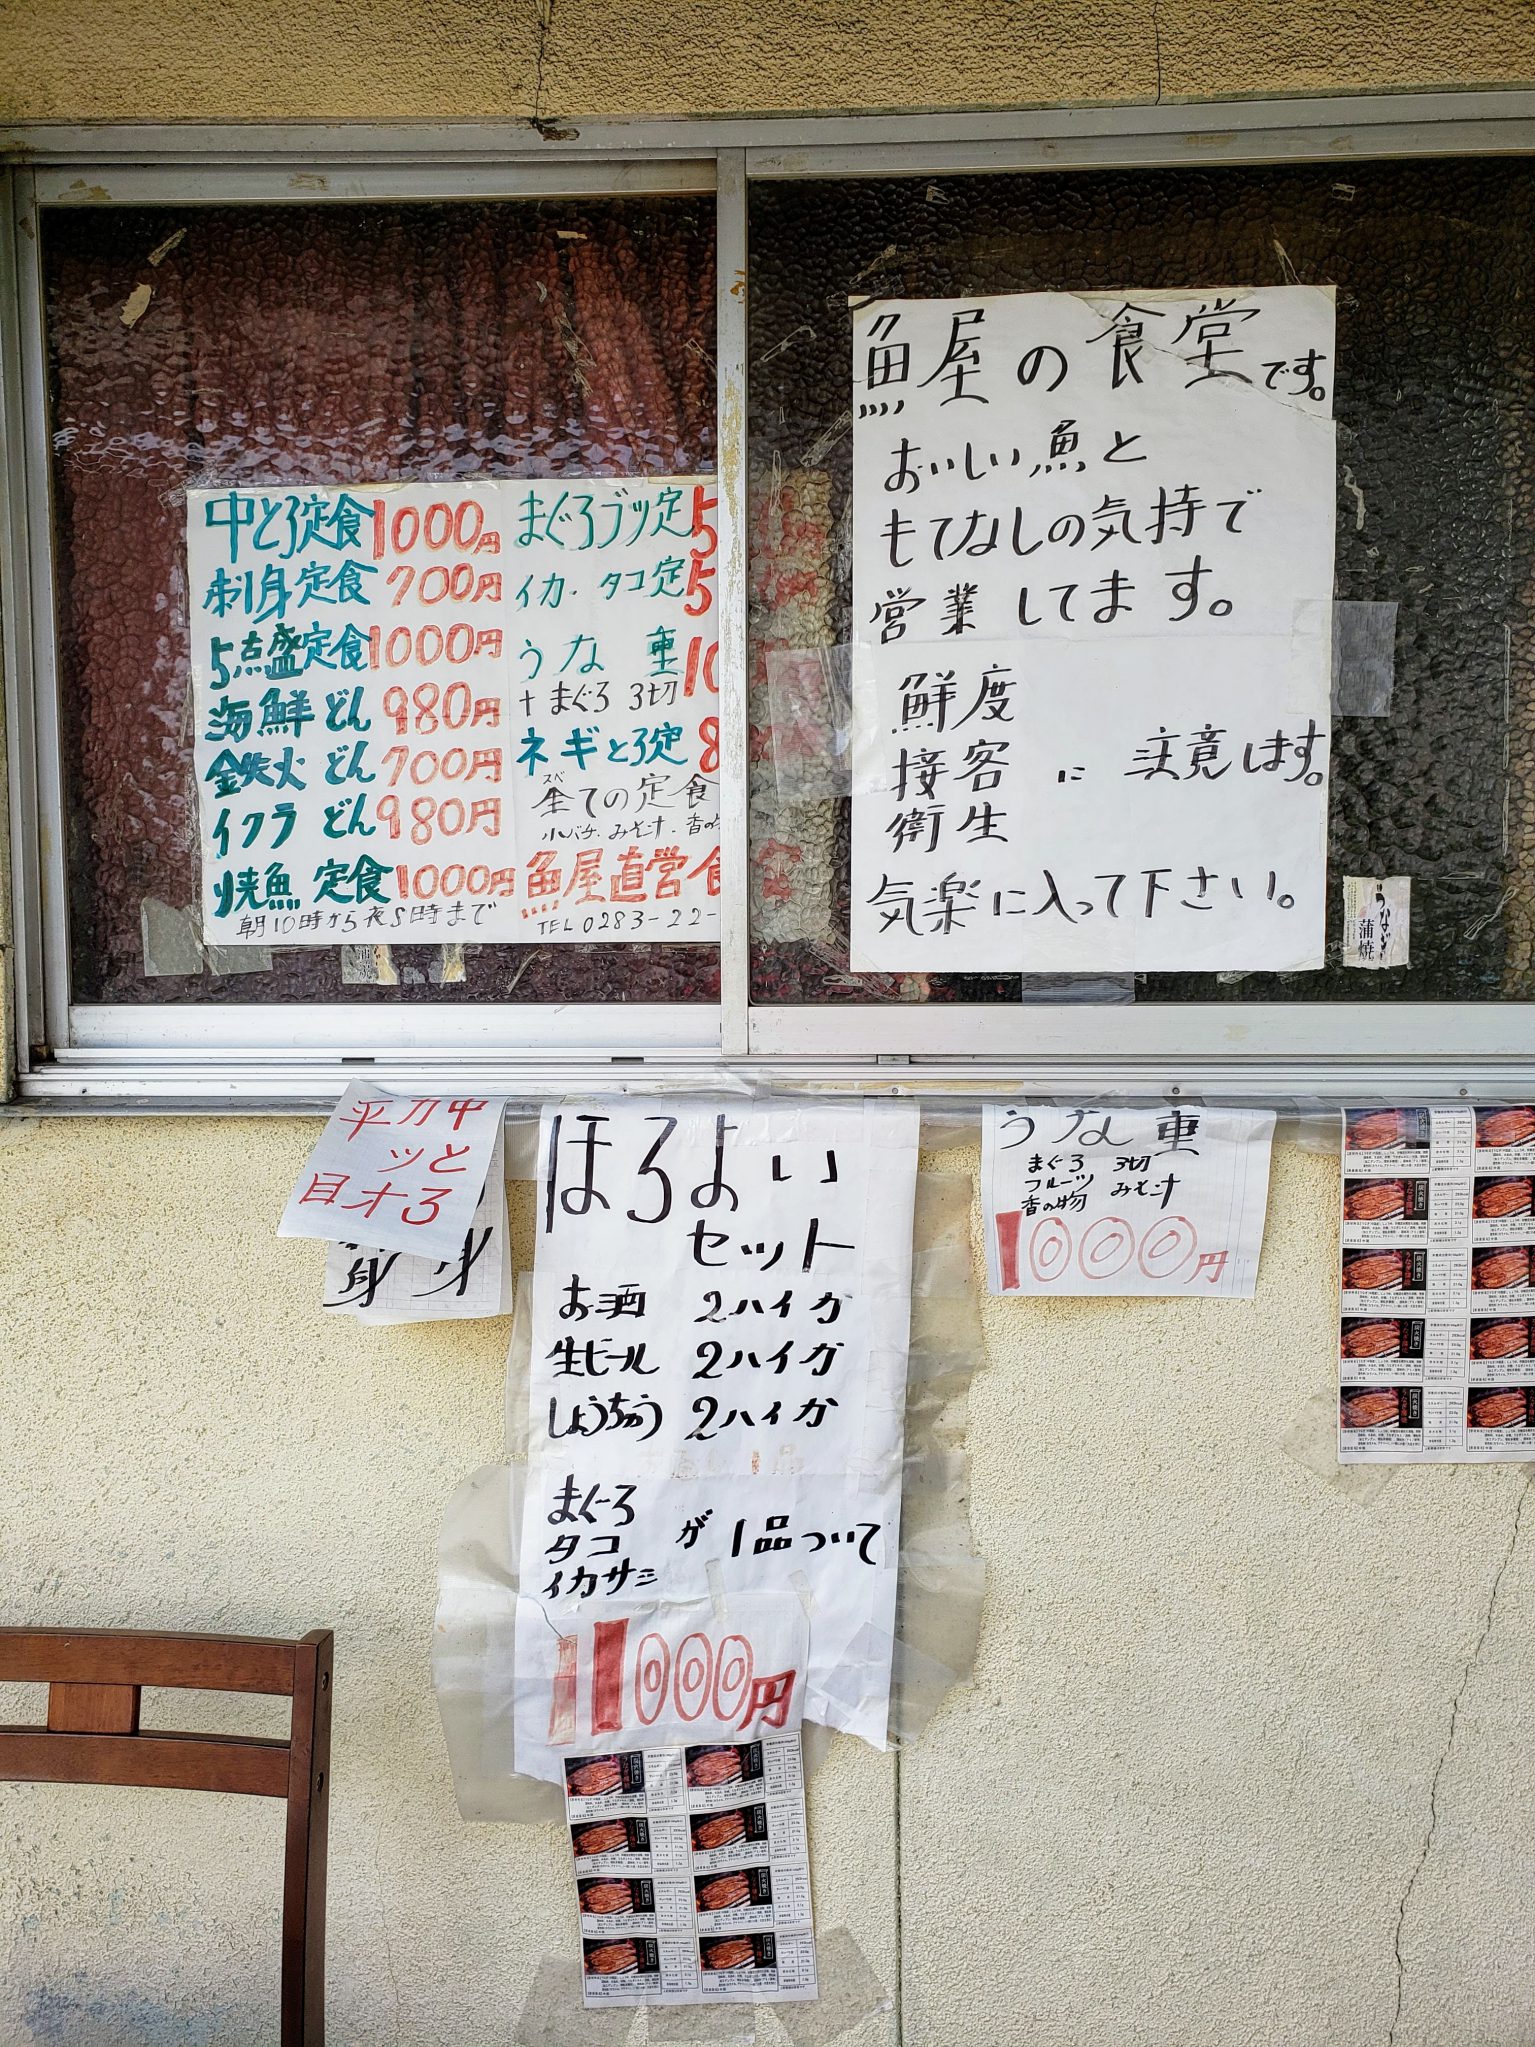 中とろ定食1000円
刺身定食 700円
5点盛定食1000円
海鮮どん 980円
鉄火どん 700円
イクラどん 980円
焼魚定食1000円
朝10時から夜8時まで
まぐろブツ定5
イカ・タコ定5
うな重10
+まぐろ 3切
ネギとろ定8
スベ
全ての定食
小バチ.みそ汁.香の
魚屋直営食
TEL 0283-22-
魚屋の食堂です。
おいしい魚と
もてなしの気持で
営業してます。
鮮度
接客 に 注意します。
衛生
気楽に入って下さい。
うなぎ
蒲焼
中とろ
カツオ
平目
ほろよい
セット
お酒 2ハイか
生ビール 2ハイか
しょうちゅう 2ハイか
まぐろ
タコ が 1品ついて
イカサシ
1000円
うな重
まぐろ 3切
フルーツ
香の物 みそ汁
1000円